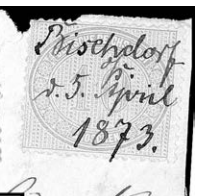 Bischdorf
d. 5. April
1873.